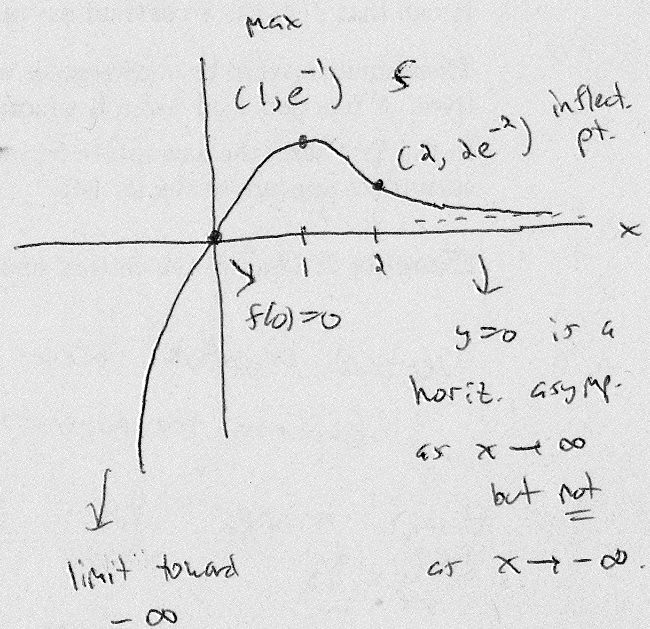 max
(1, e⁻¹)
(2, 2e⁻²)
inflect.
pt.
x
1
2
f(0)=0
y=0 is a
horiz. asymp.
as x → ∞
but not
as x → -∞.
limit toward
-∞